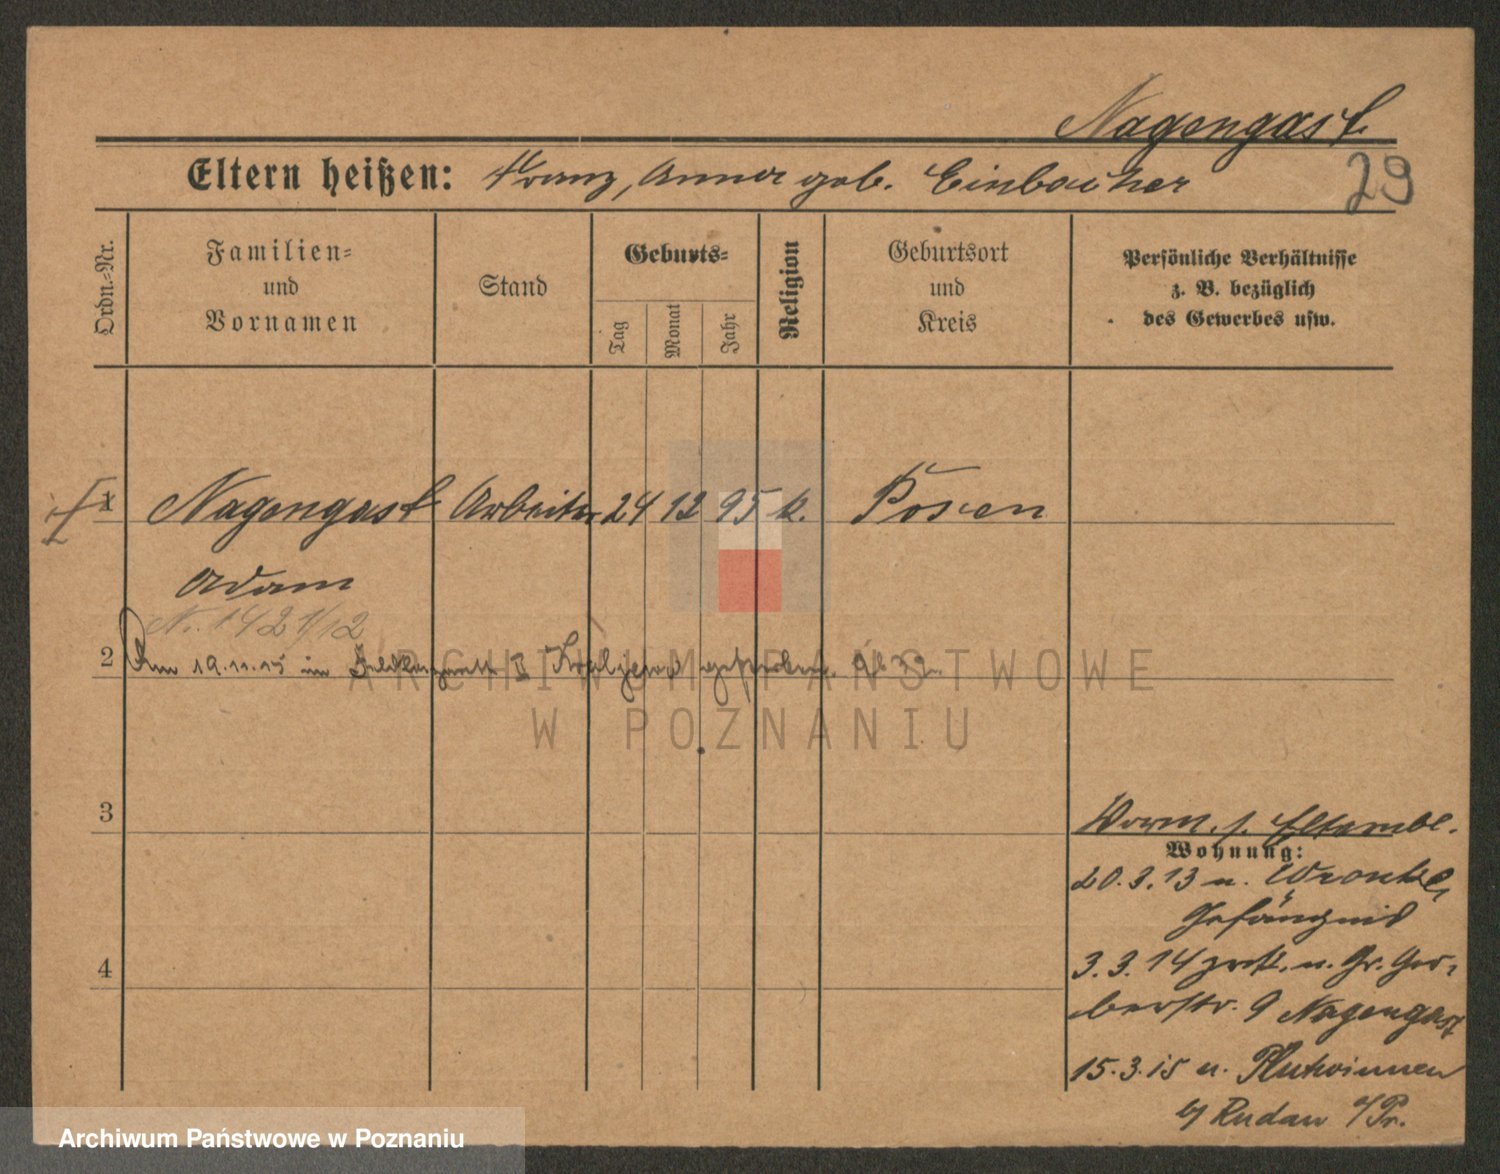 Nagengast
29
Eltern heißen: Franz, Anna geb. Einbacher
Ordn.-Nr.
Familien-
und
Vornamen
Stand
Geburts-
Tag
Monat
Jahr
Religion
Geburtsort
und
Kreis
Persönliche Verhältnisse
z. B. bezüglich
des Gewerbes usw.
1 Nagengast Arbeiter 24 12 95 k. Posen
Adam
Nr. 1421/12
2 Am 19.11.15 im II gestorben.
3
4
Worm. s. Elternbl.
Wohnung:
20.3.13 n. Wronke,
Gefängnis
3.3.14 zrck. n. Gr. Ger-
berstr. 9 Nagengast
15.3.15 n.
b/ Rudau /Pr.
ARCHIWUM PAŃSTWOWE
W POZNANIU
Archiwum Państwowe w Poznaniu